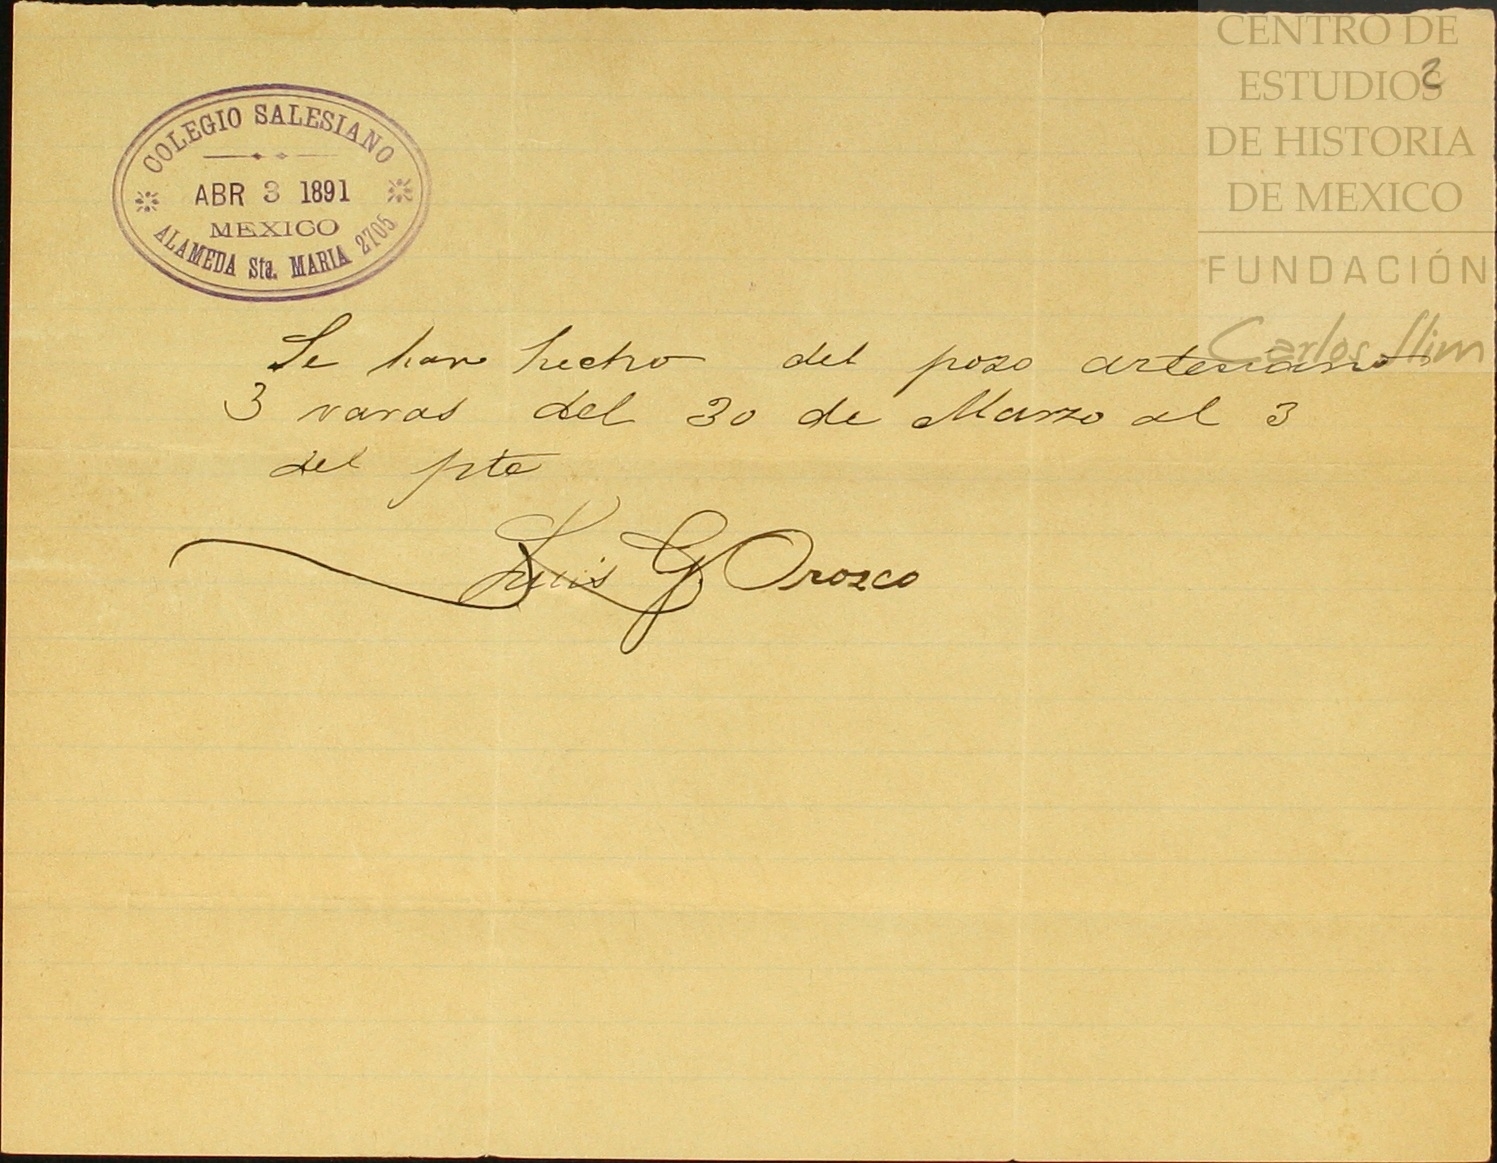 CENTRO DE
ESTUDIOS
DE HISTORIA
DE MEXICO
FUNDACIÓN
Carlos Slim
2
COLEGIO SALESIANO
ABR 3 1891
MEXICO
ALAMEDA Sta. MARIA 2705
Se han hecho del pozo artesiano
3 varas del 30 de Marzo al 3
del pte
Luis G Orozco